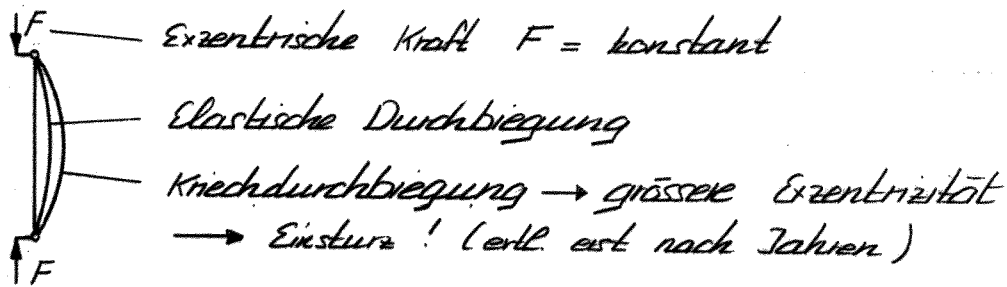 F Exzentrische Kraft F = konstant
Elastische Durchbiegung
Kriechdurchbiegung → grössere Exzentrizität
→ Einsturz ! (evtl. erst nach Jahren)
F